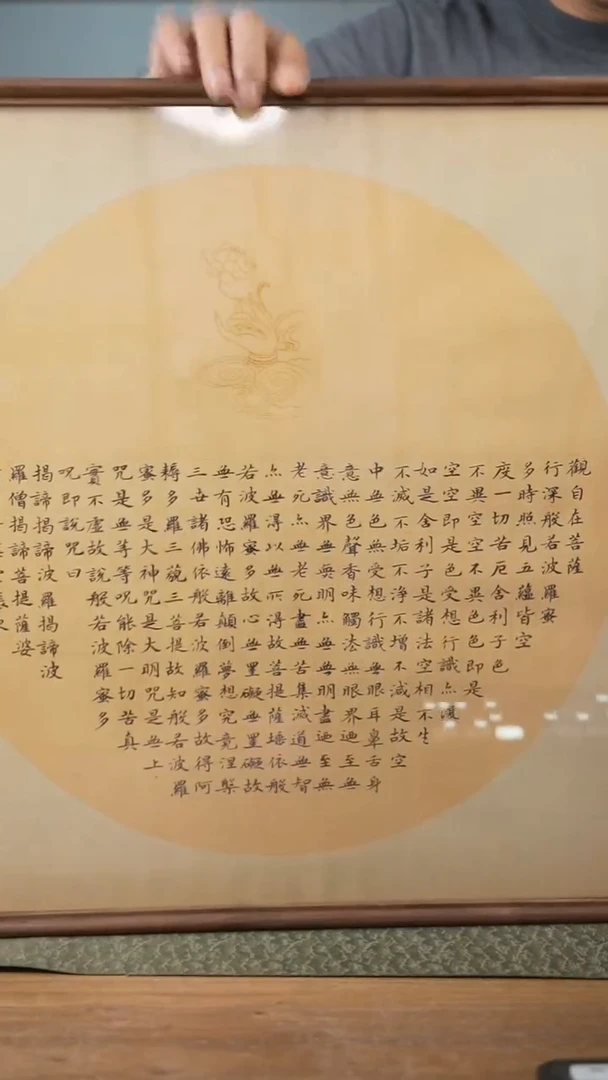 觀自在菩薩
行深般若波羅蜜
多時照見五蘊皆空
度一切苦厄舍利子色
不異空空不異色色即是
空空即是色受想行識亦復
如是舍利子是諸法空相不生
不滅不垢不淨不增不減是故空
中無色無受想行識無眼耳鼻舌身
意無色聲香味觸法無眼界迺至無
意識界無無明亦無無明盡迺至無
老死亦無老死盡無苦集滅道無智
亦無得以無所得故菩提薩埵依般
若波羅蜜多故心無罣礙無罣礙故
無有恐怖遠離顛倒夢想究竟涅槃
三世諸佛依般若波羅蜜多故得阿
耨多羅三藐三菩提故知般若波羅
蜜多是大神咒是大明咒是無上
咒是無等等咒能除一切苦真
實不虛故說般若波羅蜜多
呪即說咒曰
揭諦揭諦波羅揭諦波
羅僧揭諦菩提薩婆